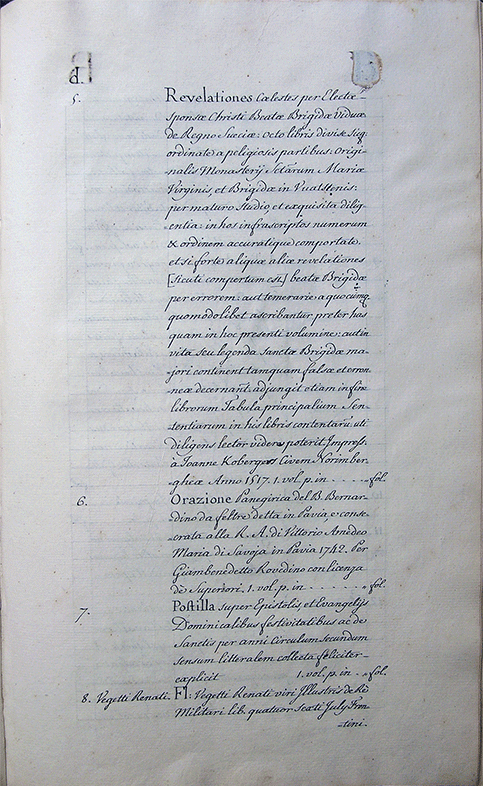 d.
5. Revelationes Cælestes per Electæ-
-sponsæ Christi Beatæ Brigidæ viduæ
de Regno Sueciæ: Octo libris divisæ Siq.
ordinate a peligiosis partibus: Origi-
-nalis Monasterij Sctarum Mariæ
Virginis, et Brigidæ in Vuatstenis:
per maturo Studio, et exquisita dilig-
-entia: in hos infrascriptos numerum
& ordinem accuratique comportate.
et si forte aliquæ aliæ revelationes
[sicuti compertum est] beatæ Brigidæ
per errorem: aut temerarie a quocūmq.
quomodolibet ascribantur preter has
quam in hoc presenti volumine: aut in
vita seu legenda Sanctæ Brigidæ ma-
-jori continent tamquam falsæ et erron-
-neæ decernant: adjungit etiam in fine
librorum Tabula principalium Sen-
-tentiarum in his libris contentarū: uti
diligens lector videre poterit. Impress.
a Joanne Koberger Civem Norimber-
-ghæ Anno 1517. 1. vol. p. in - - - - fol.
6. Orazione Panegirica del B. Bernar-
-dino da feltre detta in Pavia, e conse-
-crata alla R. A. di Vittorio Amedeo
Maria di Savoja in Pavia 1742. Per
Giambenedetto Rovedino con licenza
de' Superiori. 1. vol. p. in - - - - fol.
7. Postilla super Epistolis, et Evangelijs
Dominicalibus festivitatibus ac de
Sanctis per anni Circulum secundum
sensum litteralem collecta feliciter-
explicit 1. vol. p. in - - fol.
8. Vegetti Renati. Fl. Vegetti Renati viri Illustris de Re
Militari lib. quatuor Sexti July Fron-
-tini.